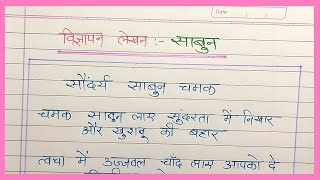 Date
विज्ञापन लेखन :- साबुन
सौंदर्य साबुन चमक
चमक साबुन लाए सुंदरता में निखार
और खुशबू की बहार
त्वचा में उज्जवल चाँद लाए आपको दे